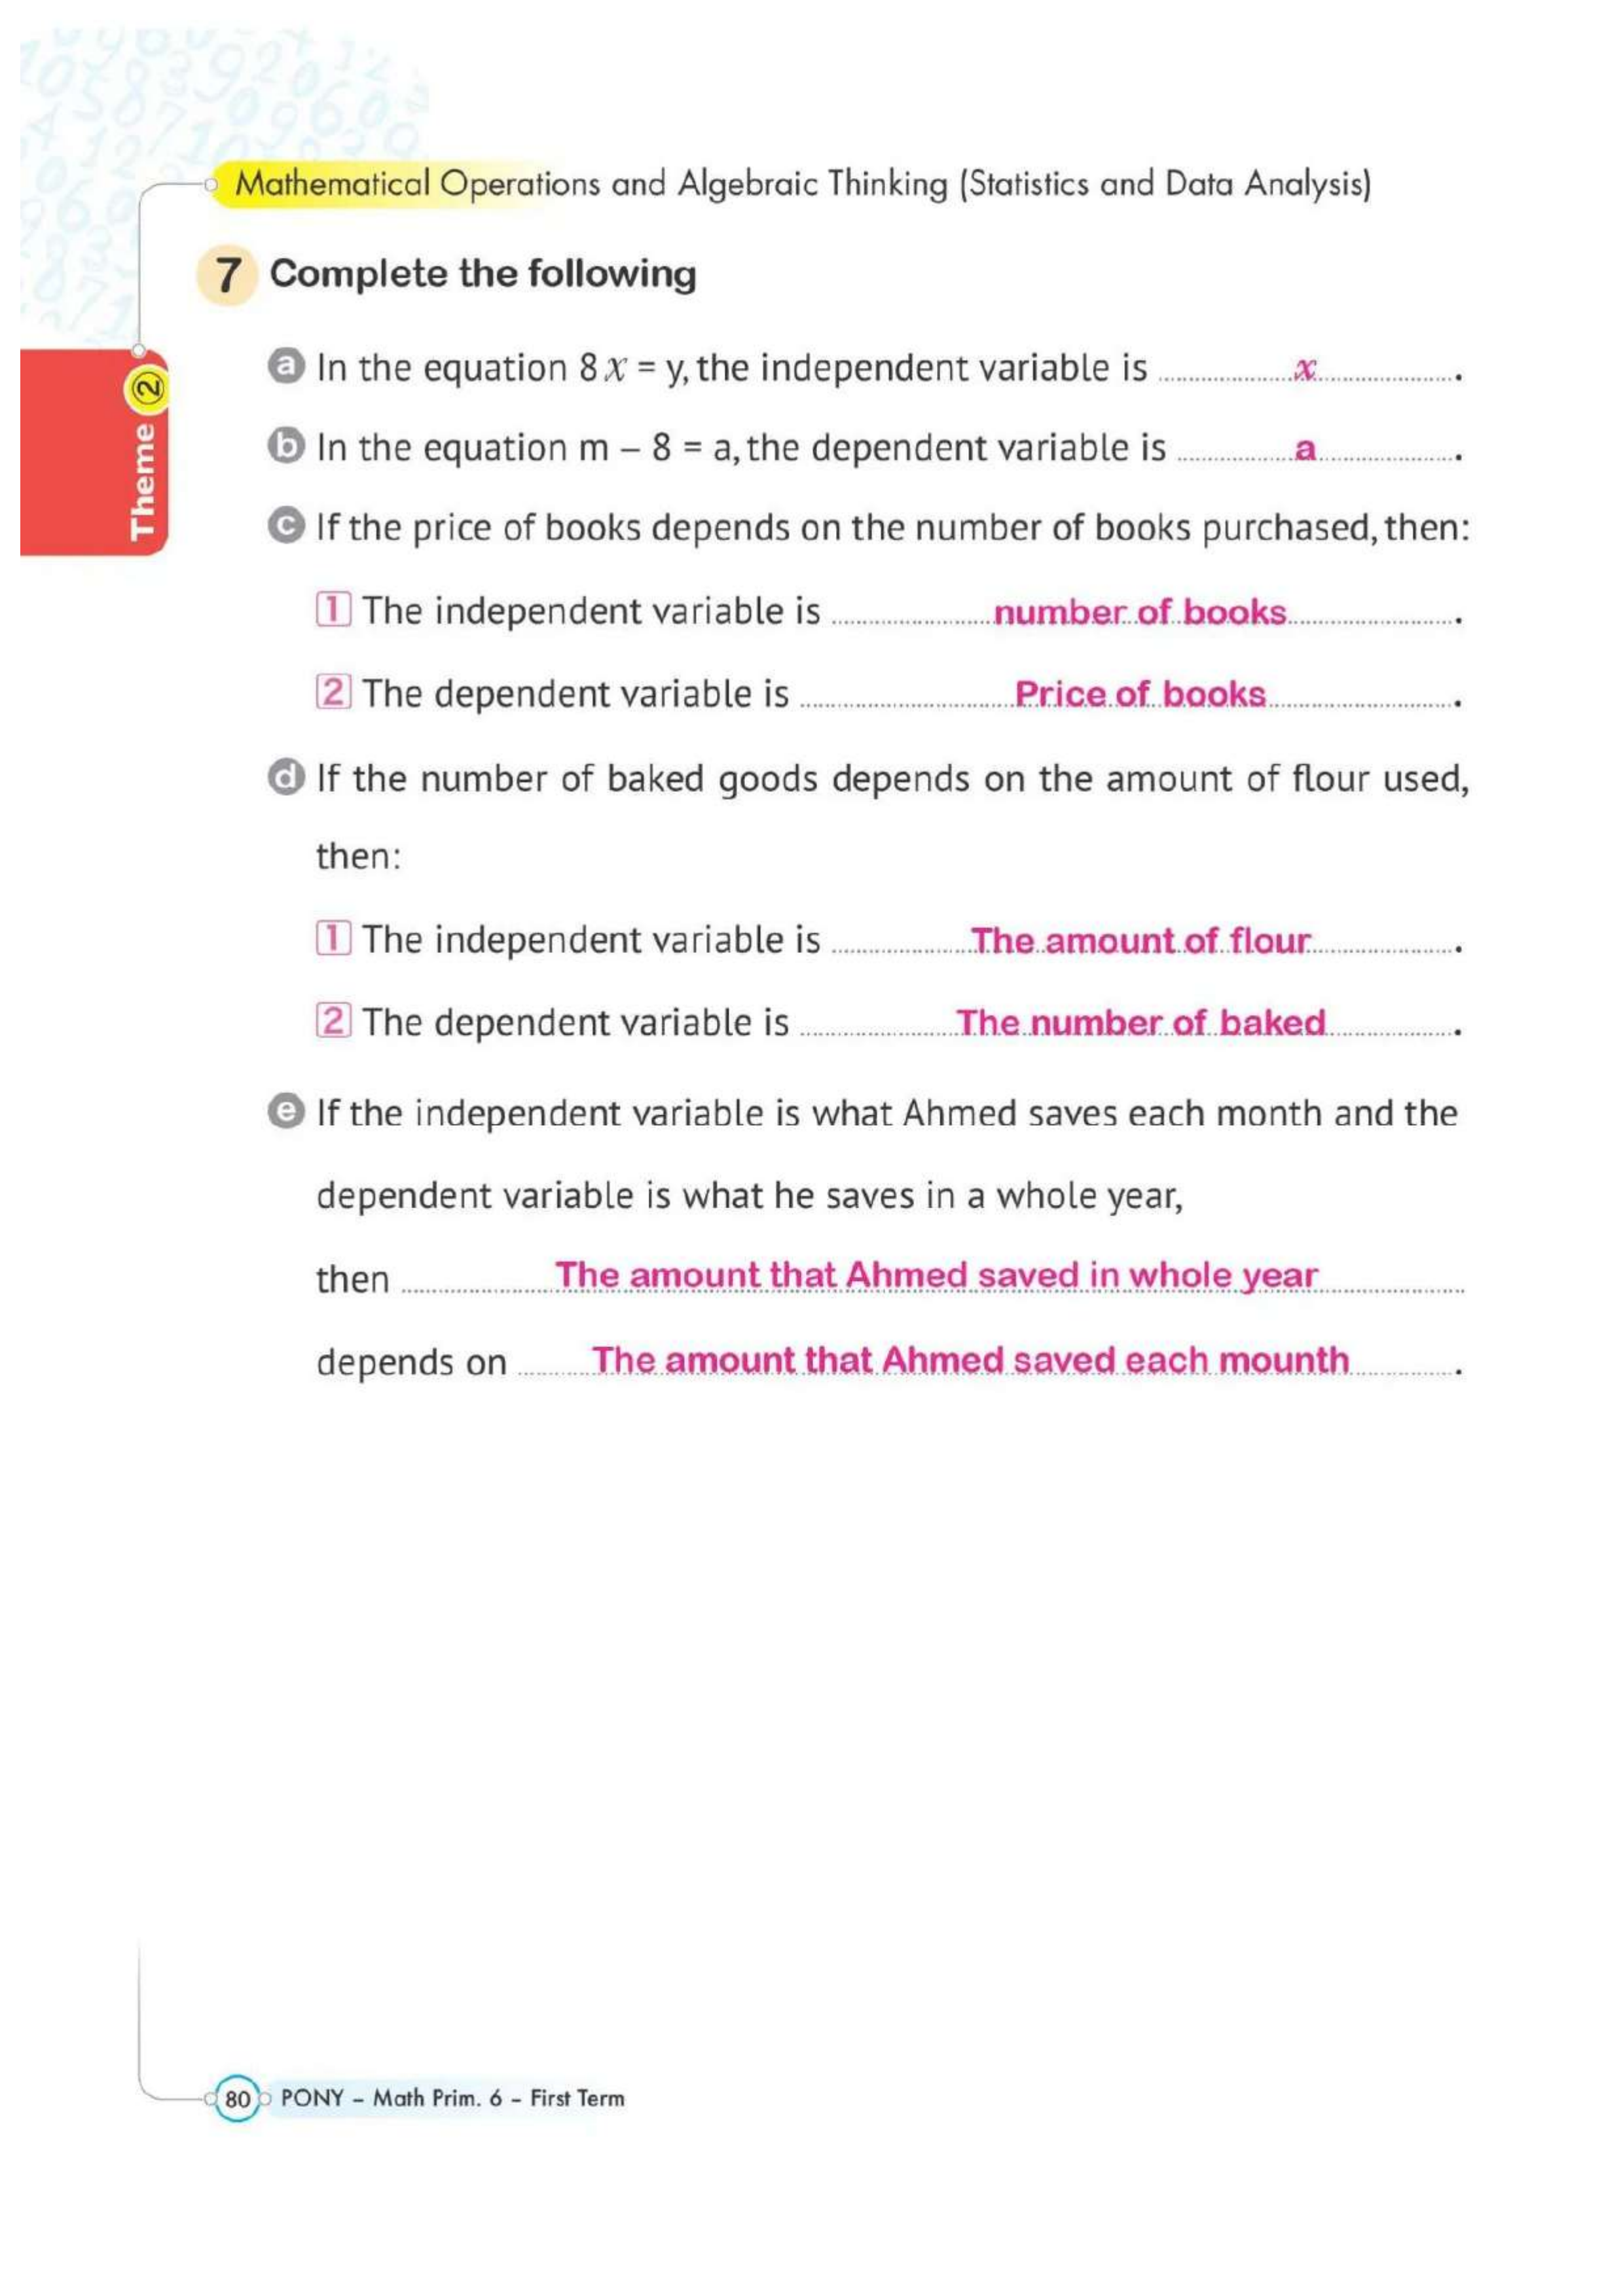 Mathematical Operations and Algebraic Thinking (Statistics and Data Analysis)
7 Complete the following
Theme 2
a In the equation 8x = y, the independent variable is ........ x ........ .
b In the equation m – 8 = a, the dependent variable is ........ a ........ .
c If the price of books depends on the number of books purchased, then:
1 The independent variable is ........ number of books ........ .
2 The dependent variable is ........ Price of books ........ .
d If the number of baked goods depends on the amount of flour used,
then:
1 The independent variable is ........ The amount of flour ........ .
2 The dependent variable is ........ The number of baked ........ .
e If the independent variable is what Ahmed saves each month and the
dependent variable is what he saves in a whole year,
then ........ The amount that Ahmed saved in whole year ........
depends on ........ The amount that Ahmed saved each mounth ........ .
80 PONY – Math Prim. 6 – First Term